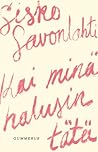 Sisko
Savonlahti
Kai minä
halusin
tätä
GUMMERUS